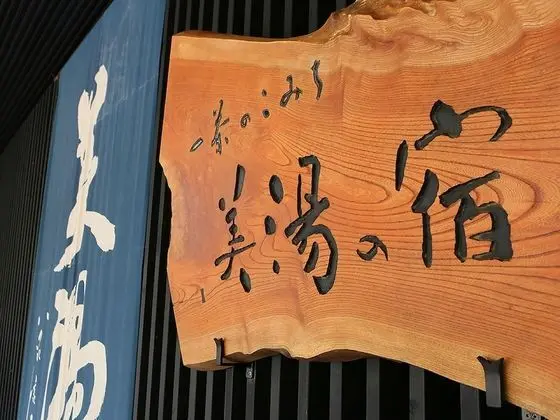 茶のこみち
美湯の宿
美湯